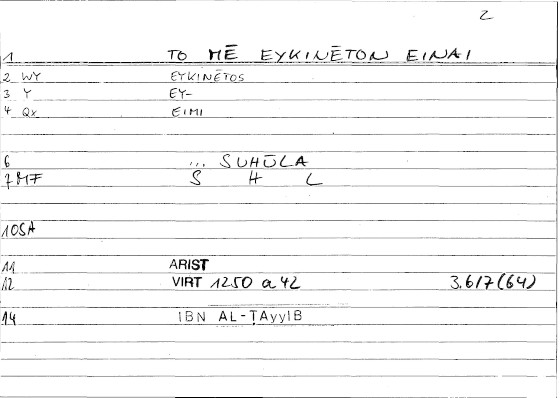 2
1 TO MĒ EYKINĒTON EINAI
2 WY EYKINĒTOS
3 Y EY-
4 Qx EIMI
6 ... SUHŪLA
7 MF S H L
10SA
11 ARIST
12 VIRT 1250 a 42 3.617(64)
14 IBN AL-ṬAyyIB